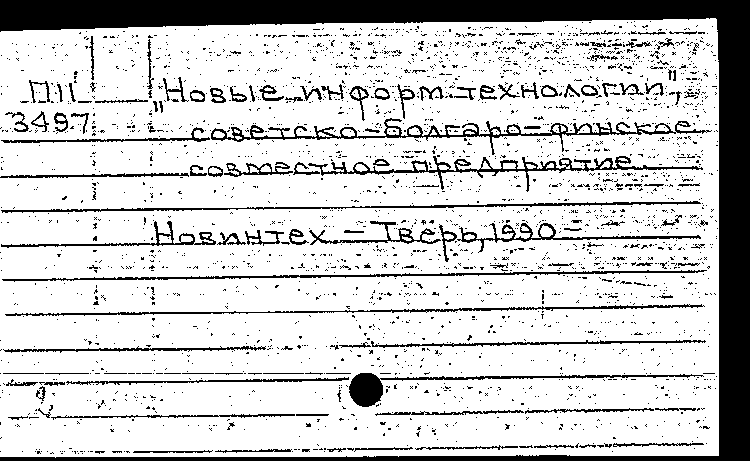 П11
3497
"Новые информ. технологии",
советско-болгаро-финское
совместное предприятие.
Новинтех. - Тверь, 1990 -
2